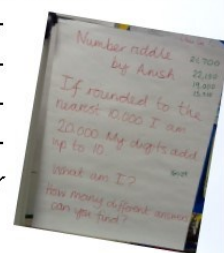 Number riddle
by Anish
If rounded to the
nearest 10,000 I am
20,000 My digits add
up to 10.
What am I?
How many different answers
can you find?